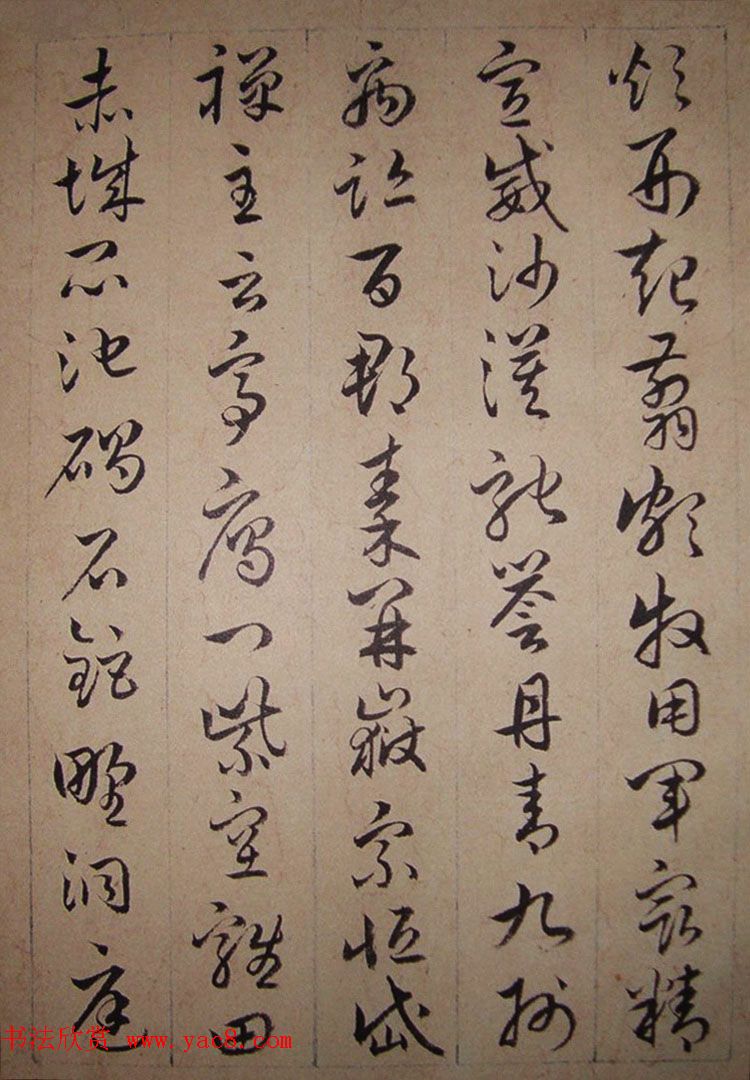 煩刑起翦頗牧用軍最精
宣威沙漠馳譽丹青九州
禹跡百郡秦并嶽宗恒岱
禪主云亭雁門紫塞雞田
赤城昆池碣石鉅野洞庭
书法欣赏 www.yac8.com